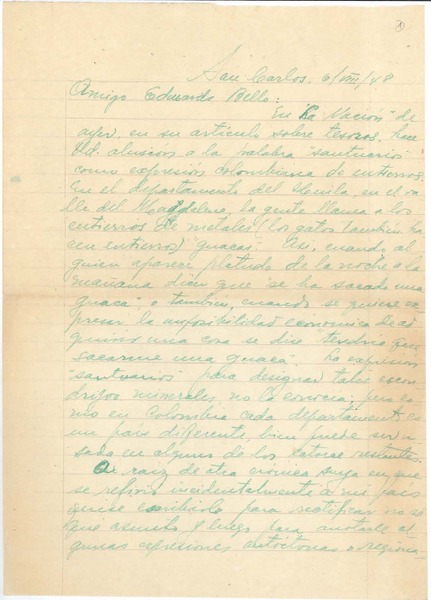 San Carlos, 6/VIII/48
Amigo Eduardo Bello:
En "La Nación" de
ayer, en su artículo sobre tesoros, hace
Ud. alusión a la palabra "santuarios"
como expresión colombiana de entierros.
En el departamento del Huila, en el va
lle del Magdalena, la gente llama a los
entierros de metales (los gatos también ha
cen entierros) "guacas". Así, cuando al
guien aparece platudo de la noche a la
mañana dicen que "se ha sacado una
guaca", o también, cuando se quiere ex
presar la imposibilidad económica de ad
quirir una cosa se dice tendría que
"sacarme una guaca". La expresión
"santuarios" para designar tales escon
drijos minerales no la conocía; pero co
mo en Colombia cada departamento es
un país diferente, bien puede ser u
sada en alguno de los catorce restantes.
A raíz de otra crónica suya en que
se refirió incidentalmente a mi país
quise escribirle para rectificar no sé
qué asunto y luego para anotarle al
gunas expresiones autóctonas o regiona